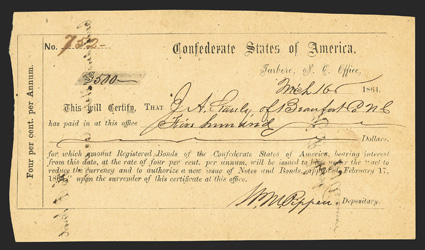 No. 752
Confederate States of America,
Tarboro, N. C. Office,
$500
Mch 16 1864.
This will Certify, THAT J A, of Beaufort Co N C
has paid in at this office Five hundred
Dollars,
for which amount Registered Bonds of the Confederate States of America, bearing interest
from this date, at the rate of four per cent. per annum, will be issued to under the "act to
reduce the currency and to authorize a new issue of Notes and Bonds," approved February 17,
upon the surrender of this certificate at this office.
Wm Pippen Depositary.
Four per cent. per Annum.